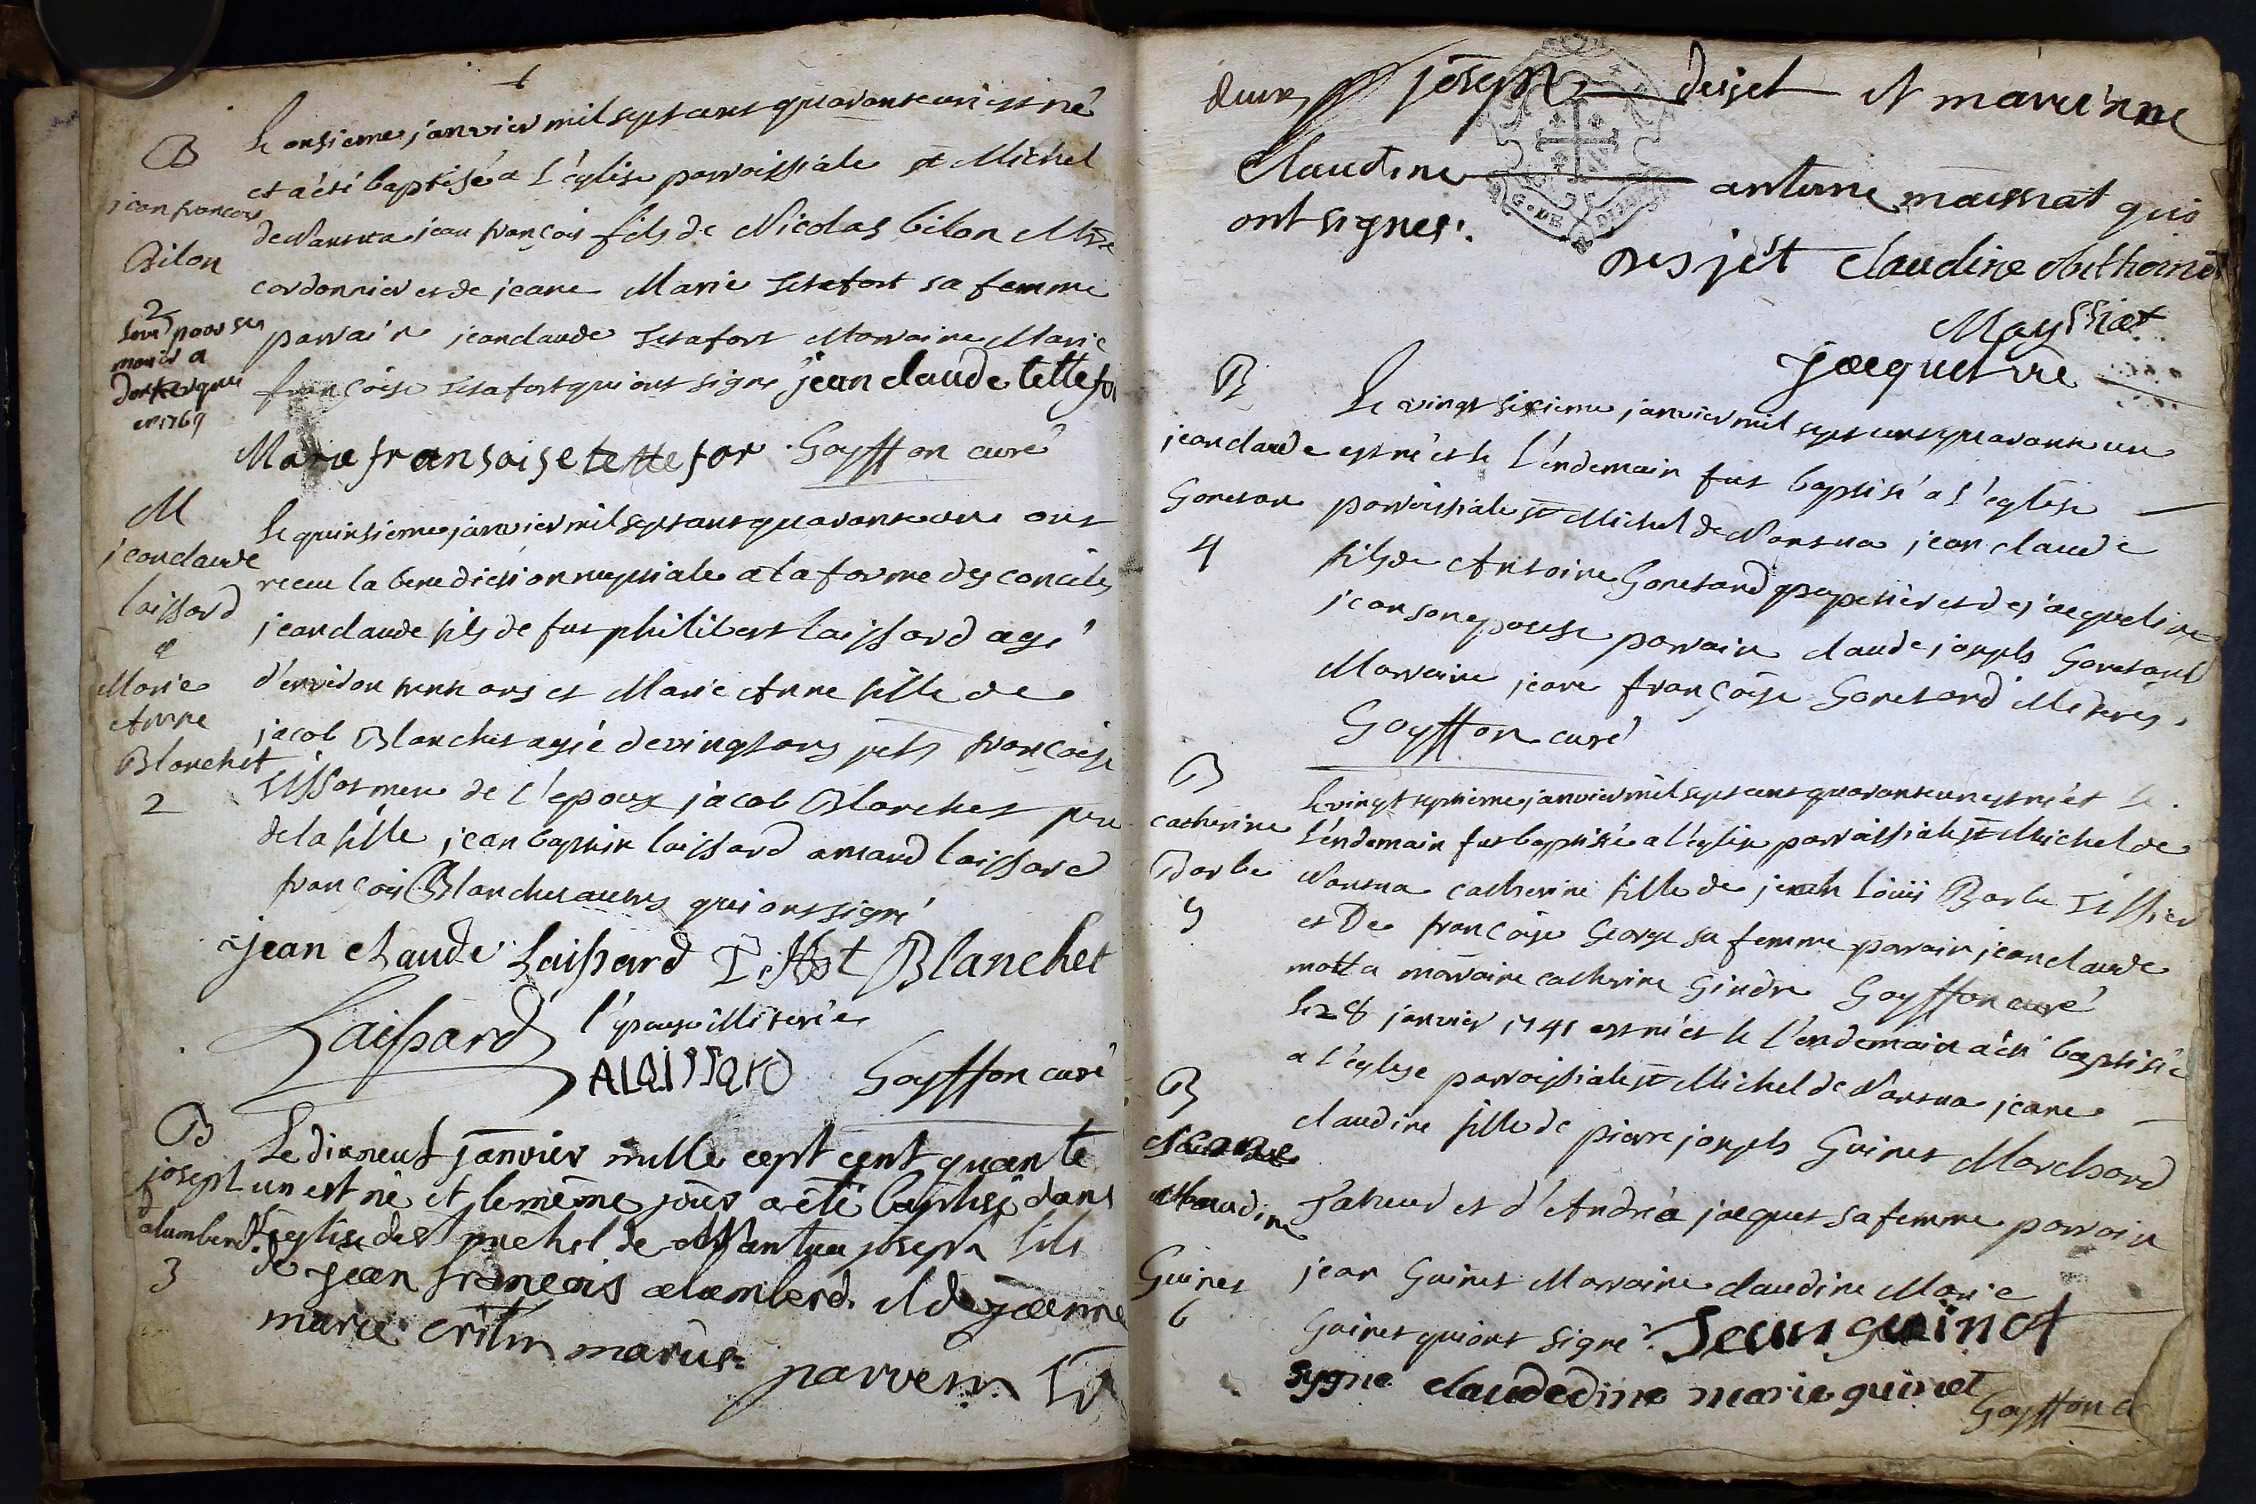 B
jean francois
Bilon
2
marié a
en 1769
Le onsieme janvier mil sept cent quarante un est né
et a été baptisé a L'église parroissiale st Michel
de Nantua jean françois fils de Nicolas bilon Mtre
cordonnier et de jeane Marie tetafort sa femme
parrain jeanclaude tetafort Marraine Marie
françoise tetafort qui ont signé jean claude tettefor
Marie fransoise tettefor Goyffon curé
M
jeanclaude
laissard
&
Marie
Anne
Blanchet
2
Le quinsieme janvier mil sept cent quarante un ont
receu la benediction nuptiale a la forme des conciles
jeanclaude fils de fut philibert laissard agé
d'environ trente ans et Marie Anne fille de
jacob Blanchet agée de vingt ans françoise
Tissot mere de l'epoux jacob Blanchet pere
de la fille jean baptiste laissard amand laissard
françois Blanchet qui ont signé
jean claude Laissard Tissot Blanchet
Laissard l'epouse illiterée
ALAISSARD Goyffon curé
B
joseph
alumberd
3
Le dixneuf janvier mille cept cent quante
un est né et le même jour a été baptisé dans
l'église de st michel de Nantua joseph fils
de jean francois alamberd et de jeanne
marie maries parrein
joseph desjet et marienne
Claudine antoine maissiat qui
ont signes.
Desjét Claudine
Maysiat
jacquet vre
B
jeanclaude
Gonetan
4
Le vingt sixieme janvier mil sept cent quarante un
est né et le l'endemain fut baptisé a l'eglise
parroissiale st Michel de Nantua jean claude
fils de Antoine Gonetand et de jacqueline
jean son epouse parrain claude joseph Gonetand
Marraine jeane françoise Gonetand illiterés.
Goyffon curé
B
catherine
Barbe
5
Le vingt septieme janvier mil sept cent quarante un est né et le
l'endemain fut baptisée a l'eglise parroissiale st Michel de
Nantua catherine fille de jean Loüis Barbe Tissier
et De françoise George sa femme parrain jeanclaude
motta marraine catherine Gindre Goyffon curé
B
Jeane
claudine
Guinet
6
le 28 janvier 1741 est né et le l'endemain a été baptisée
a l'eglise parroissiale st Michel de Nantua jeane
claudine fille de pierre joseph Guinet Marchand
et d'Andréa jacquet sa femme parrain
jean Guinet Marraine claudine Marie
Guinet qui ont signé. Jean guinet
sygne claudedine marie guinet
Goyffon c